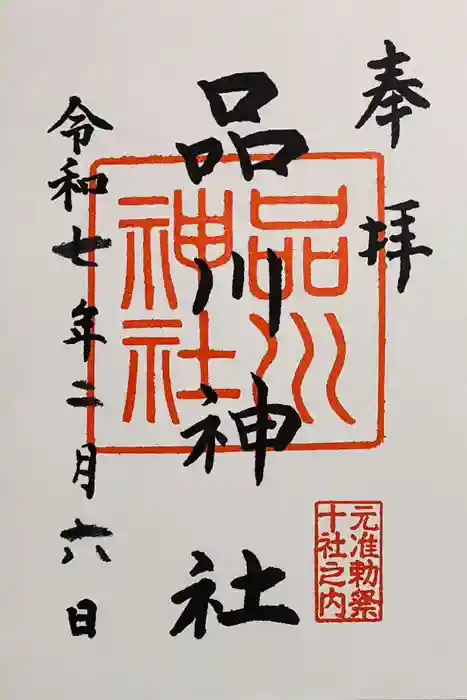 奉拝
品川神社
品川
神社
元准勅祭
十社之内
令和七年二月六日